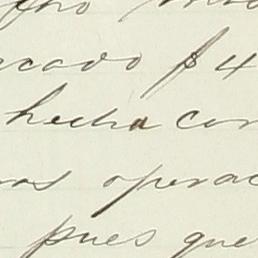 cado $4
hecha con
as operac
pues que